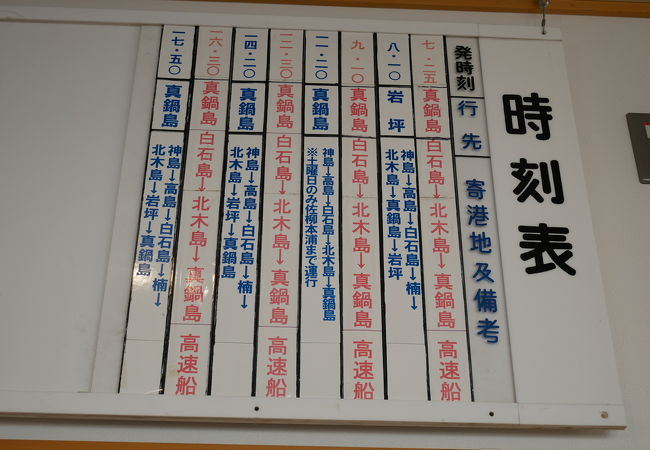 時刻表
発時刻
行先
寄港地及備考
七・二五
真鍋島
白石島→北木島→真鍋島
高速船
八・一〇
岩坪
神島→高島→白石島→楠→
北木島→真鍋島→岩坪
九・一〇
真鍋島
白石島→北木島→真鍋島
高速船
一一・二〇
真鍋島
神島→高島→白石島→北木島→真鍋島
※土曜日のみ佐柳本浦まで運行
一二・三〇
真鍋島
白石島→北木島→真鍋島
高速船
一四・二〇
真鍋島
神島→高島→白石島→楠→
北木島→岩坪→真鍋島
一六・三〇
真鍋島
白石島→北木島→真鍋島
高速船
一七・五〇
真鍋島
神島→高島→白石島→楠→
北木島→岩坪→真鍋島